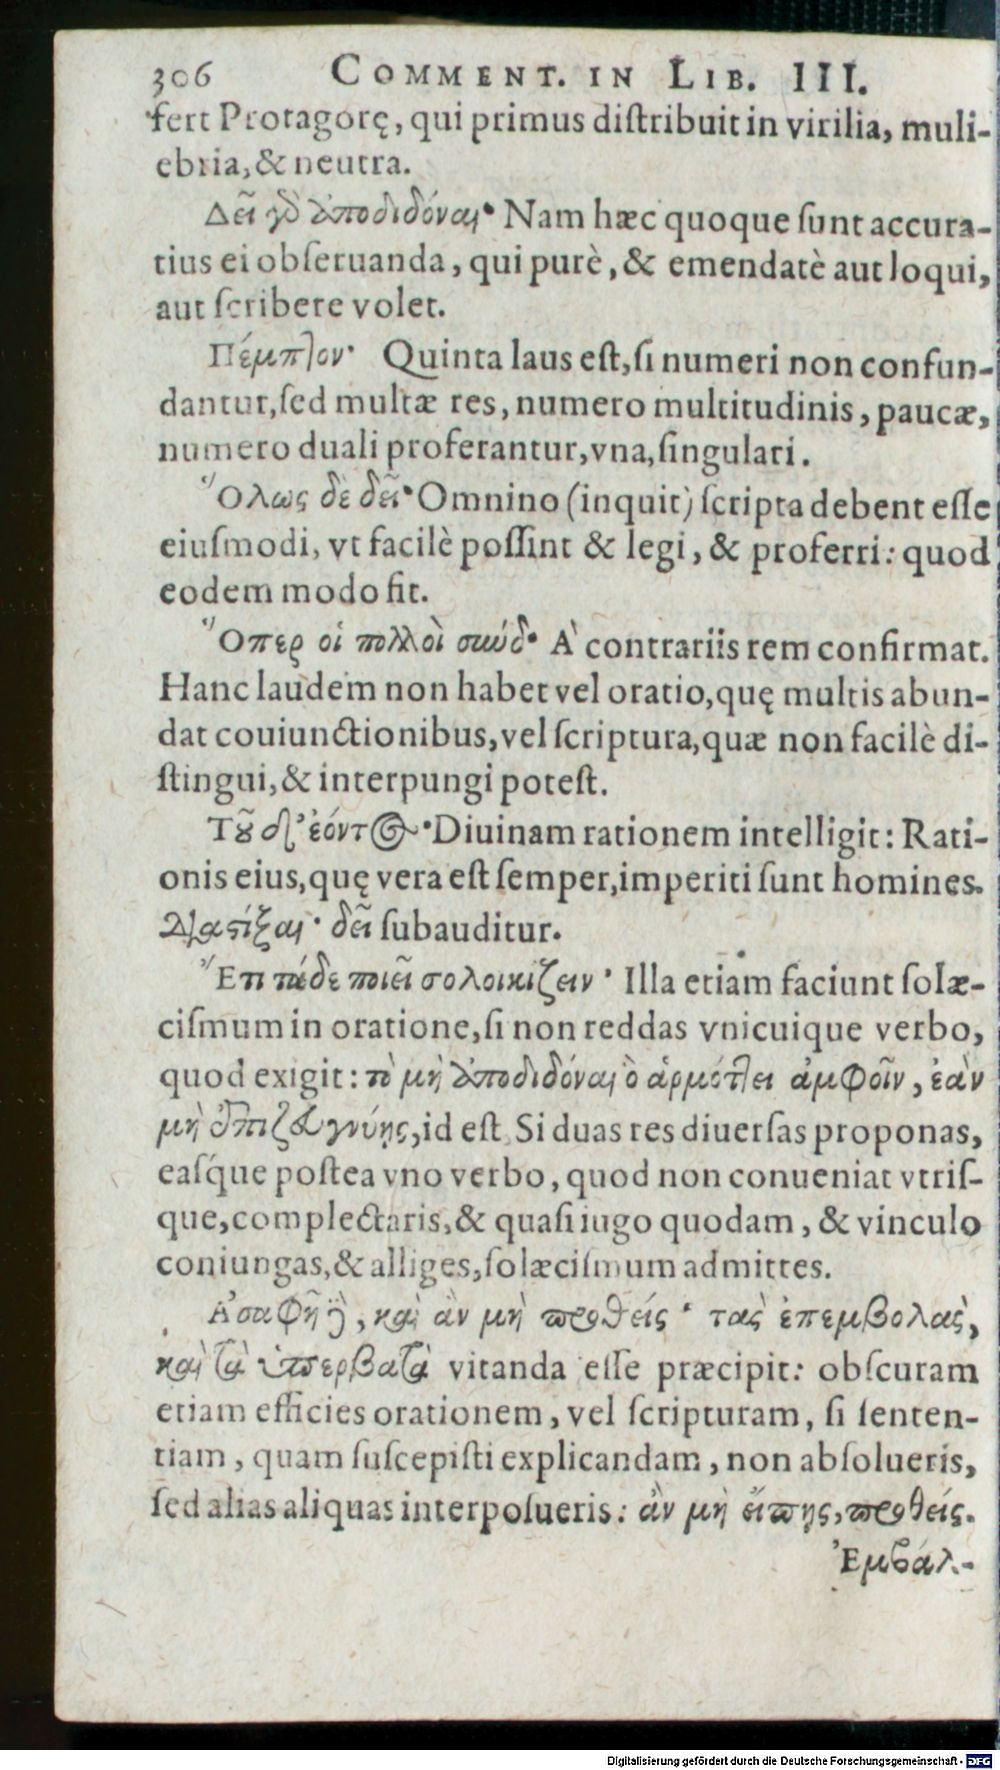 306 COMMENT. IN LIB. III.
fert Protagorę, qui primus distribuit in virilia, muli-
ebria, & neutra.
Δεῖ γὸ ἀποδιδόναι· Nam hæc quoque sunt accura-
tius ei obseruanda, qui purè, & emendatè aut loqui,
aut scribere volet.
Πέμπτον· Quinta laus est, si numeri non confun-
dantur, sed multæ res, numero multitudinis, paucæ,
numero duali proferantur, vna, singulari.
Ὅλως δὲ δεῖ· Omnino (inquit) scripta debent esse
eiusmodi, vt facilè possint & legi, & proferri: quod
eodem modo fit.
Ὅπερ οἱ πολλοὶ σωύδ· A' contrariis rem confirmat.
Hanc laudem non habet vel oratio, quę multis abun-
dat couiunctionibus, vel scriptura, quæ non facilè di-
stingui, & interpungi potest.
Τοῦ δ' ἐόντος· Diuinam rationem intelligit: Rati-
onis eius, quę vera est semper, imperiti sunt homines.
Διαστίξαι· δεῖ subauditur.
Ἔτι τάδε ποιεῖ σολοικίζειν· Illa etiam faciunt solæ-
cismum in oratione, si non reddas vnicuique verbo,
quod exigit: τὸ μὴ ἀποδιδόναι ὃ ἁρμόττει ἀμφοῖν, ἐὰν
μὴ ἐπιζευγνύῃς, id est Si duas res diuersas proponas,
easque postea vno verbo, quod non conueniat vtris-
que, complectaris, & quasi iugo quodam, & vinculo
coniungas, & alliges, solæcismum admittes.
Ἀσαφῆ δὲ, καὶ ἂν μὴ προθείς· τὰς ἐπεμβολὰς,
καὶ τὰ ὑπερβατὰ vitanda esse præcipit: obscuram
etiam efficies orationem, vel scripturam, si senten-
tiam, quam suscepisti explicandam, non absolueris,
sed alias aliquas interposueris: ἂν μὴ εἴπῃς, προθείς.
Ἐμβάλ-
Digitalisierung gefördert durch die Deutsche Forschungsgemeinschaft - DFG